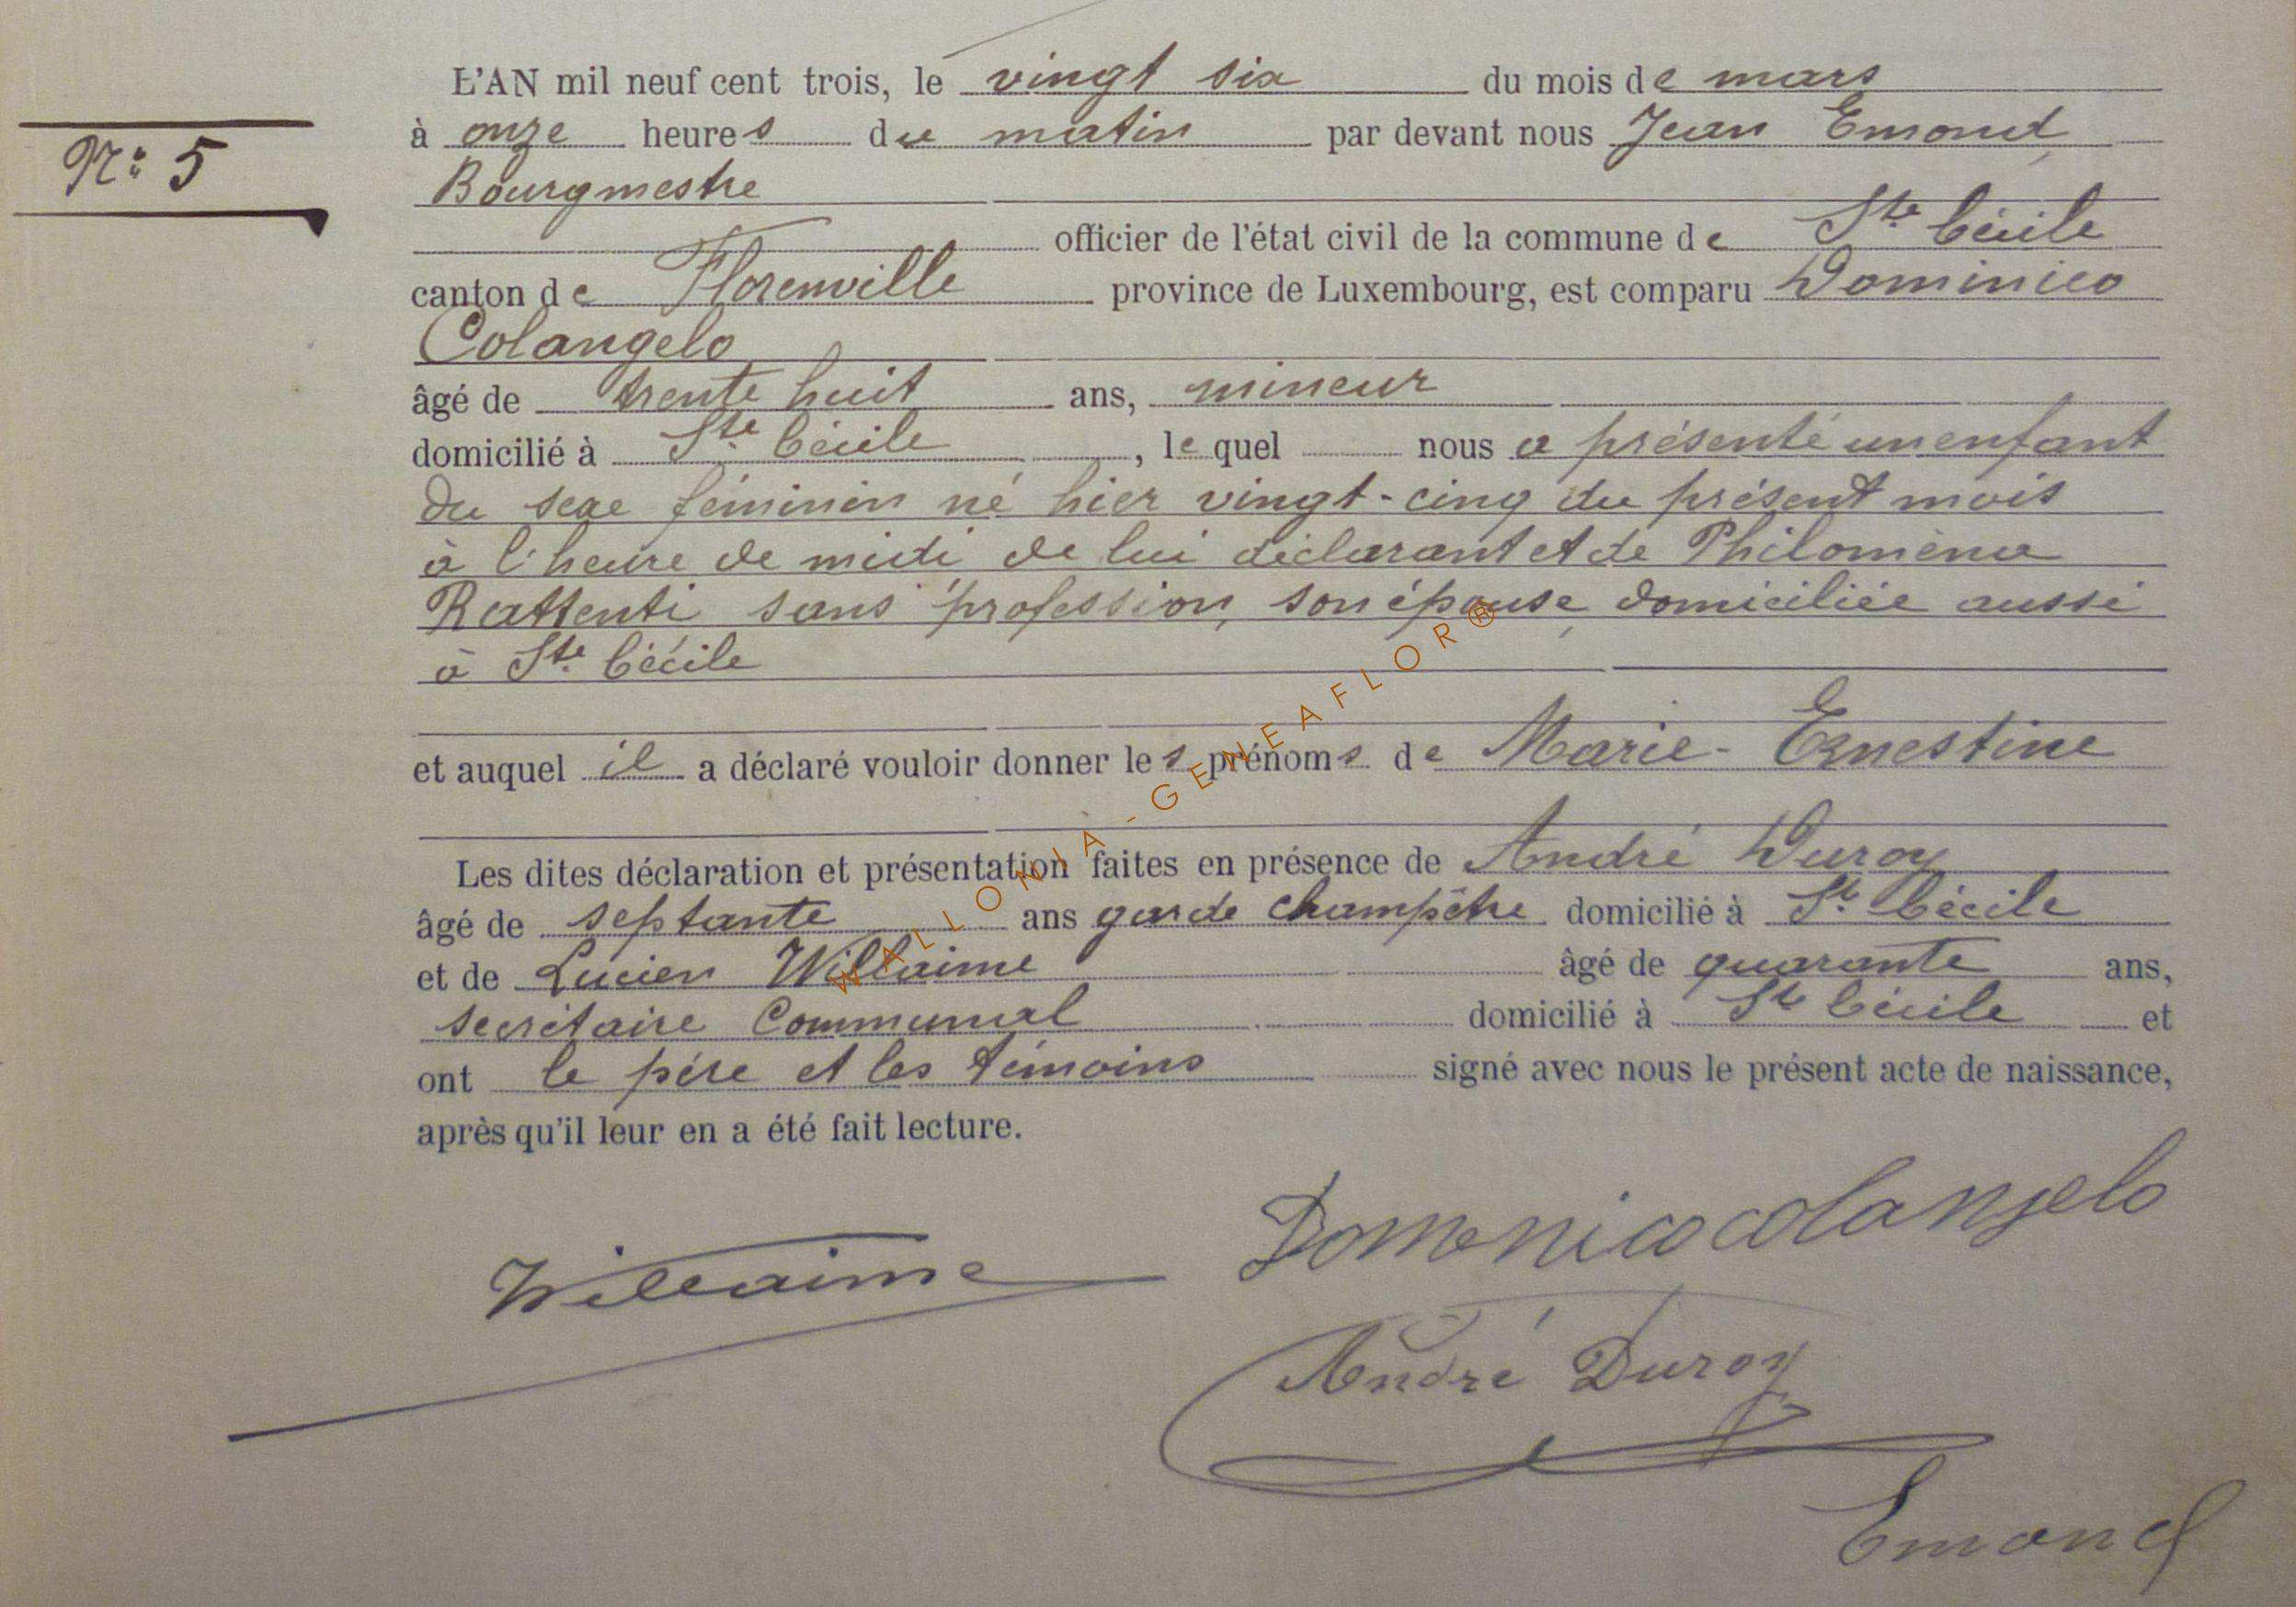 L'AN mil neuf cent trois, le vingt six du mois de mars
N° 5
à onze heures du matin par devant nous Jean Emond,
Bourgmestre
officier de l'état civil de la commune de Ste Cécile
canton de Florenville province de Luxembourg, est comparu Dominico
Colangelo
âgé de trente huit ans, mineur
domicilié à Ste Cécile, lequel nous a présenté un enfant
du sexe féminin né hier vingt-cinq du présent mois
à l'heure de midi de lui déclarant et de Philoména
Rattenti sans profession, son épouse, domiciliée aussi
à Ste Cécile
et auquel il a déclaré vouloir donner les prénoms de Marie-Ernestine
Les dites déclaration et présentation faites en présence de André Duroy
âgé de septante ans garde champêtre domicilié à Ste Cécile
et de Lucien Willaime âgé de quarante ans,
secrétaire Communal domicilié à Ste Cécile et
ont le père et les témoins signé avec nous le présent acte de naissance,
après qu'il leur en a été fait lecture.
Domenico colangelo
Willaime
André Duroy
Emond
WALLONIA-GENEAFLOR®